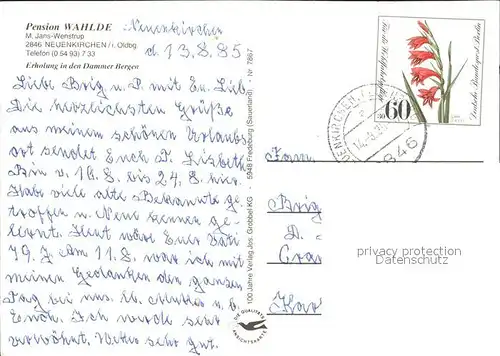 Pension WAHLDE
M. Jans-Wenstrup
2846 NEUENKIRCHEN i. Oldbg.
Telefon (0 54 93) 7 33
Erholung in den Dammer Bergen
Neuenkirchen
d. 13.8.85
Liebe Brig u. P. mit Eu. Lieb.
Die herzlichsten Grüße
aus meinem schönen Urlaubs
ort sendet Euch T. Lisbeth
Bin v. 10.8. bis 24.8. hier.
Hab viele alte Bekannte ge-
troffen u. Neue kennen ge-
lernt. Heut wäre Euer Vati
79 J. Am 11.8. war ich mit
meinen Gedanken den ganzen
Tag bei uns. lb. u. b.
Euch. Ich werde sehr
verwöhnt. Wetter sehr gut.
100 Jahre Verlag Jos. Grobbel KG · 5948 Fredeburg (Sauerland) · Nr. 7867
DIE QUALITÄTS
ANSICHTSKARTE
Für die Wohlfahrtspflege
60
Deutsche Bundespost Berlin
NEUENKIRCHEN
2846
Fam.
Brig
D.
privacy protection
Datenschutz